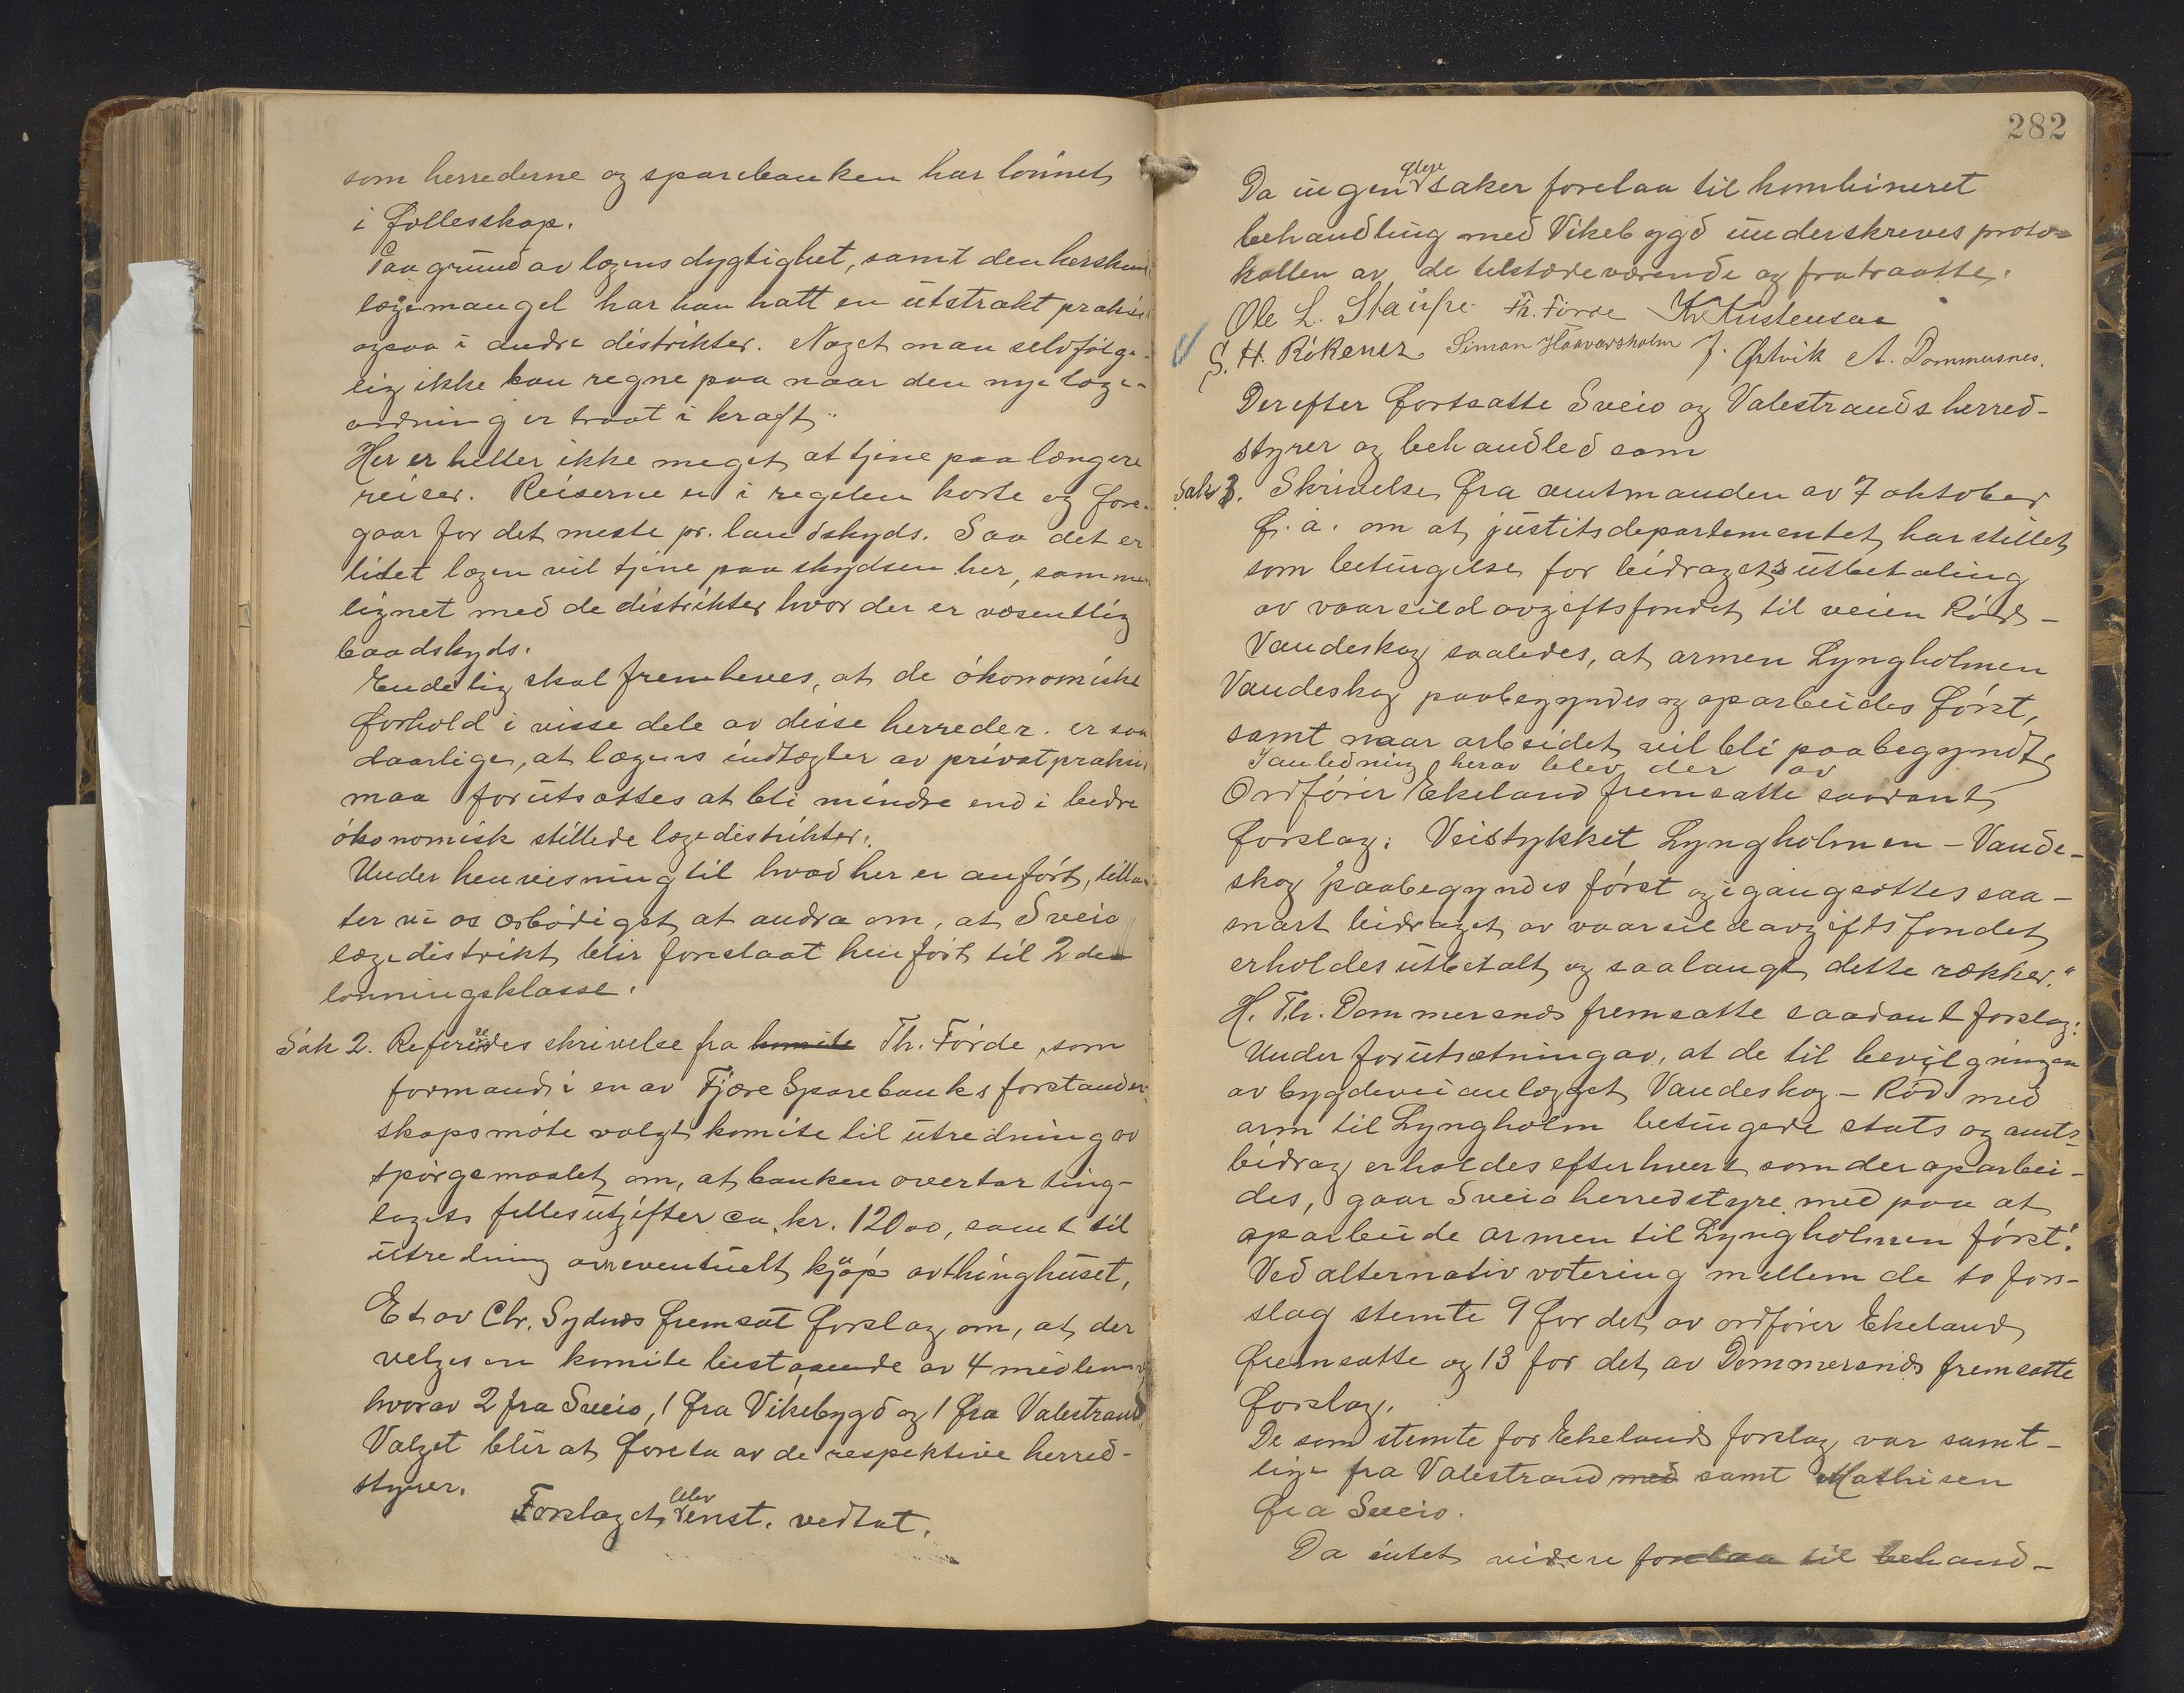 som herrederne og sparebanken har lønnet
i fællesskap.
Paa grund av lægens dygtighet, samt den herskende
lægemangel har han hatt en utstrakt praksis
ogsaa i andre distrikter. Noget man selvfølge-
lig ikke kan regne paa naar den nye læge-
ordning er traat i kraft.
Her er heller ikke meget at tjene paa længere
reiser. Reiserne er i regelen korte og fore-
gaar for det meste pr. landskyds. Saa det er
litet lægen vil tjene paa skydsen her, sammen
lignet med de distrikter hvor der er væsentlig
baadskyds.
Endelig skal fremheves, at de økonomiske
forhold i visse dele av disse herreder er saa
daarlige, at lægens indtægter av privatpraksis
maa forutsættes at bli mindre end i bedre
økonomisk stillede lægedistrikter.
Under henvisning til hvad her er anført, tilla-
ter vi os ærbødigst at andra om, at Sveio
lægedistrikt blir foreslaat henført til 2den
lønningsklasse.
Sak 2. Refereredes skrivelse fra komite Th. Førde, som
formand i en av Fjære Sparebanks forstander-
skapsmøte valgt komite til utredning av
spørgsmaalet om, at banken overtar ting-
lagets fellesutgifter ca. kr. 1200, samt til
utredning om eventuelt kjøp av thinghuset,
Et av Chr. Sydnes fremsat forslag om, at der
velges en komite bestaaende av 4 medlemmer
hvorav 2 fra Sveio, 1 fra Vikebygd og 1 fra Valestrand,
Valget blir at foreta av de respektive herred-
styrer.
Forslaget blev enst. vedtat.
282
Da ingen flere saker forelaa til kombineret
behandling med Vikebygd underskreves proto-
kollen av de tilstedeværende og fratraatte.
Ole L. Staupe Th. Førde Kr. Kristensen
S. H. Rökenes Simon Haavarsholm J. Østvik A. Dommersnes.
Derefter fortsatte Sveio og Valestrands herred-
styrer og behandled som
Sak 3. Skrivelse fra amtmanden av 7 oktober
f. a. om at justitsdepartementet har stillet
som betingelse for bidragets utbetaling
av vaarsildavgiftsfondet til veien Rød -
Vandeskog saaledes, at armen Lyngholmen
Vandeskog paabegyndes og oparbeides først,
samt naar arbeidet vil bli paabegyndt.
I anledning herav blev der av
Ordfører Ekeland fremsatte saadant
forslag: Veistykket Lyngholmen - Vande-
skog paabegyndes først og igangsættes saa-
snart bidraget av vaarsildavgiftsfondet
erholdes utbetalt og saalangt dette rækker."
H. Th. Dommersnes fremsatte saadant forslag:
Under forutsætning av, at de til bevilgningen
av bygdeveianlægget Vandeskog - Rød med
arm til Lyngholm betingede stats og amts-
bidrag erholdes efterhvert som der oparbei-
des, gaar Sveio herredstyre med paa at
oparbeide armen til Lyngholmen først".
Ved alternativ votering mellem de to for-
slag stemte 9 for det av ordfører Ekeland
fremsatte og 13 for det av Dommersnes fremsatte
forslag.
De som stemte for Ekelands forslag var samt-
lige fra Valestrand med samt Mathisen
fra Sveio.
Da intet videre forelaa til behand-